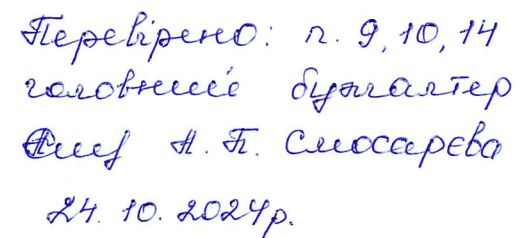 Перевірено: п. 9, 10, 14
головний бухгалтер
Н. П. Слюсарєва
24. 10. 2024р.